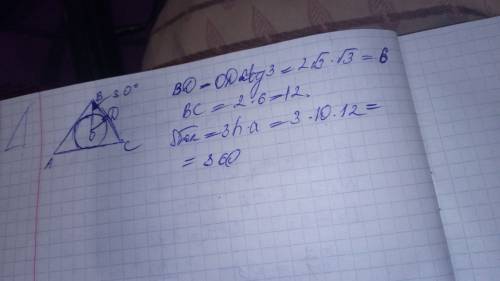 B 30°
D
O
A C
BD = OD ctg 3 = 2√3 · √3 = 6
BC = 2 · 6 = 12.
Sбок = 3h · a = 3 · 10 · 12 =
= 360